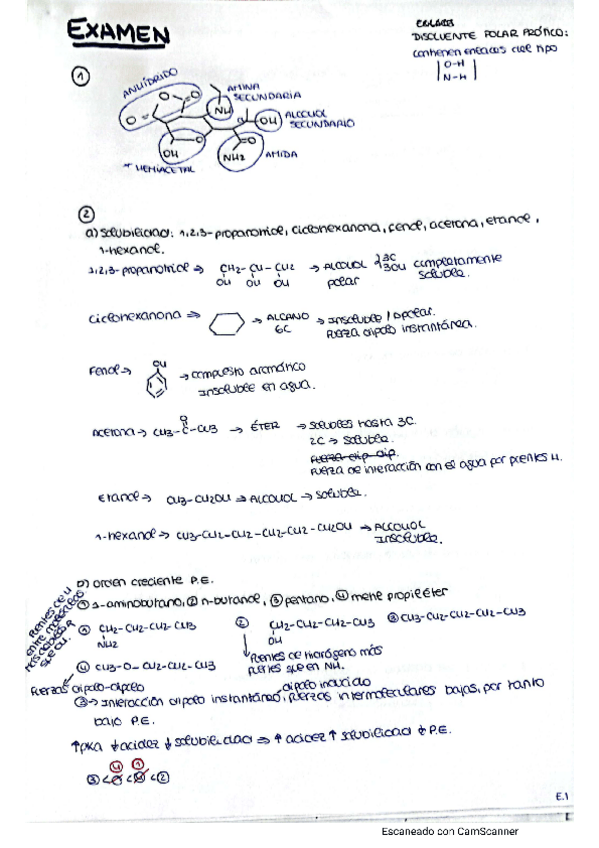 EXAMEN
ENLACES
DISOLVENTE POLAR PRÓTICO:
contienen enlaces del tipo
O-H
N-H
①
ANHÍDRIDO
AMINA
SECUNDARIA
ALCOHOL
SECUNDARIO
AMIDA
* HEMIACETAL
O
O
O
NH
OH
O
OH
O
NH2
②
a) Solubilidad: 1,2,3-propanotriol, ciclohexanona, fenol, acetona, etanol,
1-hexanol.
1,2,3-propanotriol → CH2-CH-CH2 → ALCOHOL 3C 3OH completamente
OH OH OH polar soluble.
Ciclohexanona → → ALCANO → Insoluble / apolar.
6C Fuerza dipolo instantánea.
Fenol → OH → compuesto aromático
Insoluble en agua.
O
Acetona → CH3-C-CH3 → ÉTER → solubles hasta 3C.
2C → soluble.
Fuerza dip dip.
Fuerza de interacción con el agua por puentes H.
Etanol → CH3-CH2OH → ALCOHOL → soluble.
1-hexanol → CH3-CH2-CH2-CH2-CH2-CH2OH → ALCOHOL
Insoluble.
b) orden creciente P.E.
① 1-aminobutano, ② n-butanol, ③ pentano, ④ metil propiléter
Puentes de H
entre moléculas
que OH.
① CH2-CH2-CH2-CH3 ② CH2-CH2-CH2-CH3 ③ CH3-CH2-CH2-CH2-CH3
NH2 OH
Puentes de hidrógeno más
fuertes que en NH.
④ CH3-O-CH2-CH2-CH3
Fuerzas dipolo-dipolo
dipolo inducido
③ → Interacción dipolo instantáneo, fuerzas intermoleculares bajas, por tanto
bajo P.E.
↑pKa ↓acidez ↓solubilidad ⇒ ↑acidez ↑solubilidad ↓P.E.
④ ①
③ < < < ②
E.1
Escaneado con CamScanner